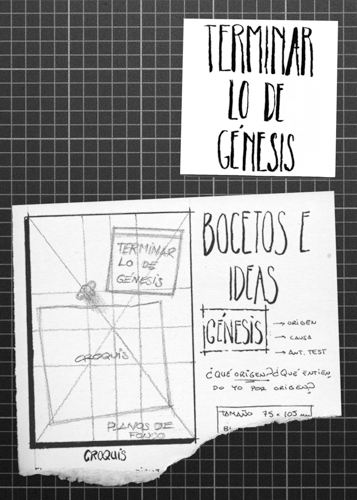 TERMINAR
LO DE
GÉNESIS
BOCETOS E
IDEAS
TERMINAR
LO DE
GÉNESIS
GÉNESIS
→ ORIGEN
→ CAUSA
→ ANT. TEST
CROQUIS
¿QUÉ ORIGEN? ¿QUÉ ENTIEN
DO YO POR ORIGEN?
TAMAÑO 75 x 105 mm
PLANOS DE
FONDO
CROQUIS